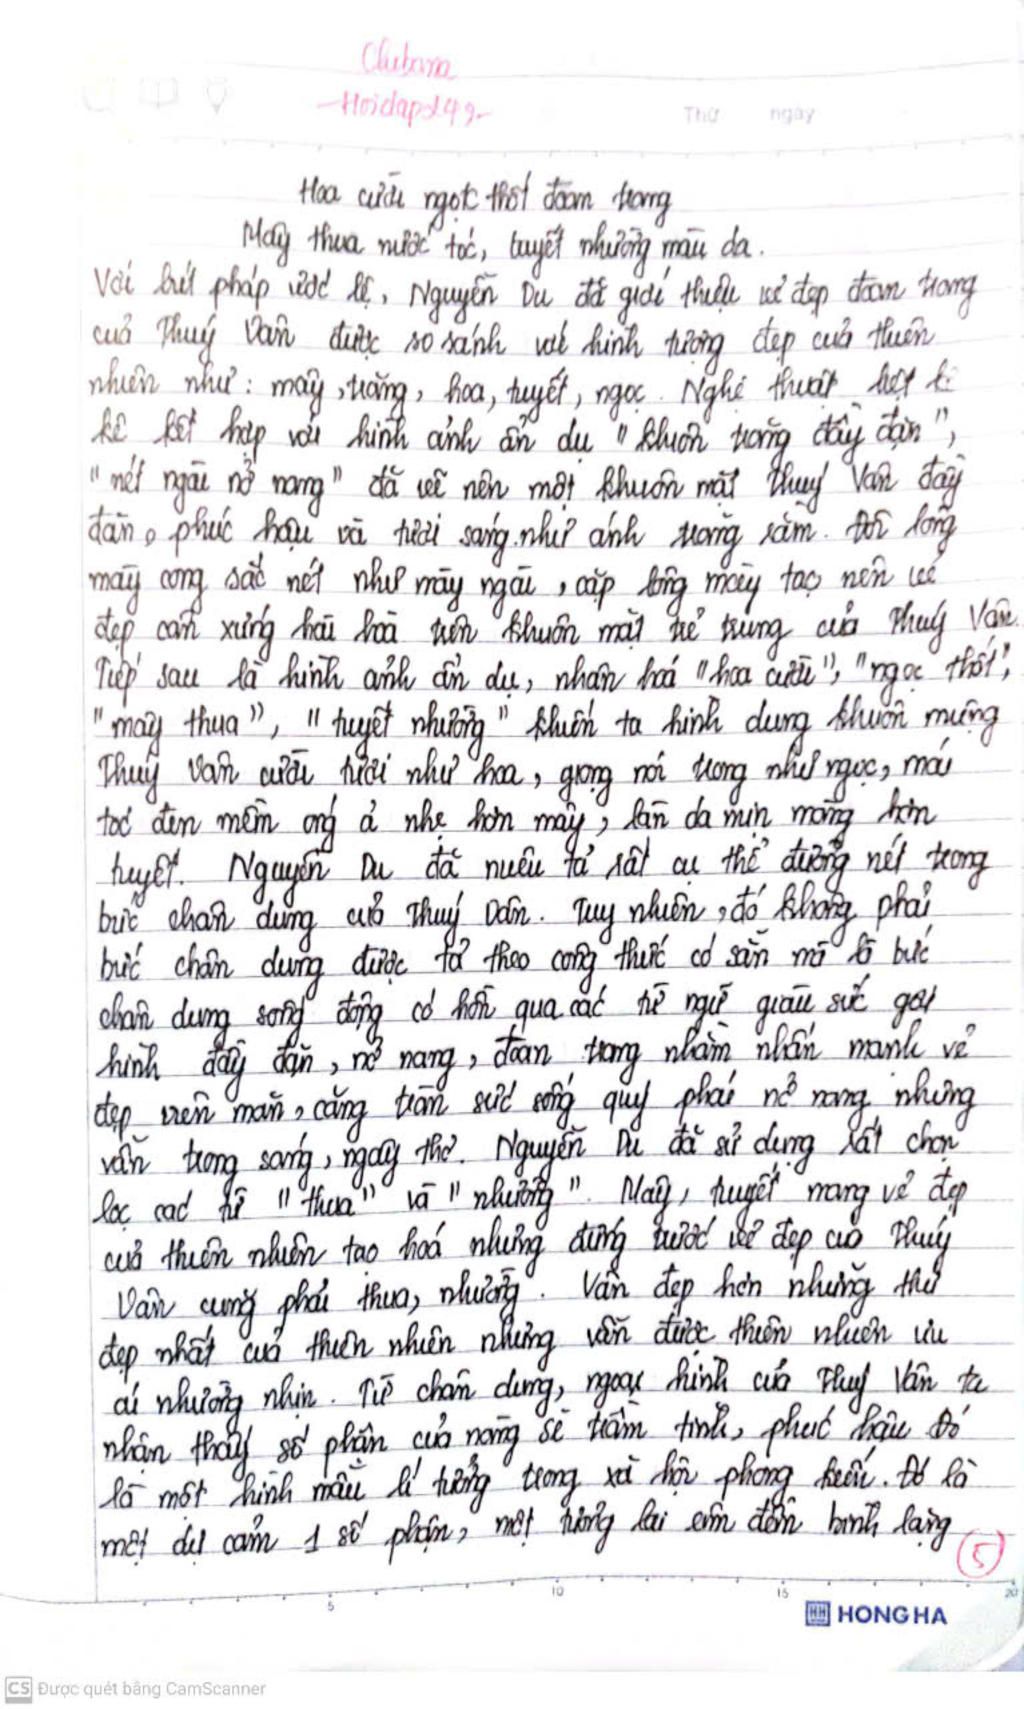 Thứ ngày
Hoa cười ngọc thốt đoan trang
Mây thua nước tóc, tuyết nhường màu da.
Với bút pháp ước lệ, Nguyễn Du đã giới thiệu vẻ đẹp đoan trang
của Thuý Vân được so sánh với hình tượng đẹp của thiên
nhiên như: mây, trăng, hoa, tuyết, ngọc. Nghệ thuật liệt
kê kết hợp với hình ảnh ẩn dụ "khuôn trăng đầy đặn",
"nét ngài nở nang" đã vẽ nên một khuôn mặt Thuý Vân đầy
đặn, phúc hậu và tươi sáng như ánh trăng rằm. Đôi lông
mày cong sắc nét như mày ngài, cặp lông mày tạo nên vẻ
đẹp cân xứng hài hoà trên khuôn mặt trẻ trung của Thuý Vân.
Tiếp sau là hình ảnh ẩn dụ, nhân hoá "hoa cười", "ngọc thốt",
"mây thua", "tuyết nhường" khiến ta hình dung khuôn miệng
Thuý Vân cười tươi như hoa, giọng nói trong như ngọc, mái
tóc đen mềm óng ả nhẹ hơn mây, làn da mịn màng hơn
tuyết. Nguyễn Du đã miêu tả rất cụ thể đường nét trong
bức chân dung của Thuý Vân. Tuy nhiên, đó không phải
bức chân dung được tả theo công thức có sẵn mà là bức
chân dung sống động có hồn qua các từ ngữ giàu sức gợi
hình đầy đặn, nở nang, đoan trang nhằm nhấn mạnh vẻ
đẹp viên mãn, căng tràn sức sống quý phái nở nang nhưng
vẫn trong sáng, ngây thơ. Nguyễn Du đã sử dụng rất chọn
lọc các từ "thua" và "nhường". Mây, tuyết mang vẻ đẹp
của thiên nhiên tạo hoá nhưng đứng trước vẻ đẹp của Thuý
Vân cũng phải thua, nhường. Vân đẹp hơn những thứ
đẹp nhất của thiên nhiên nhưng vẫn được thiên nhiên ưu
ái nhường nhịn. Từ chân dung, ngoại hình của Thuý Vân ta
nhận thấy số phận của nàng sẽ trầm tĩnh, phúc hậu đó
là một hình mẫu lí tưởng trong xã hội phong kiến. Đó là
một dự cảm 1 số phận, một tương lai êm đềm bình lặng
5
5 10 15 20
HH HONG HA
CS Được quét bằng CamScanner